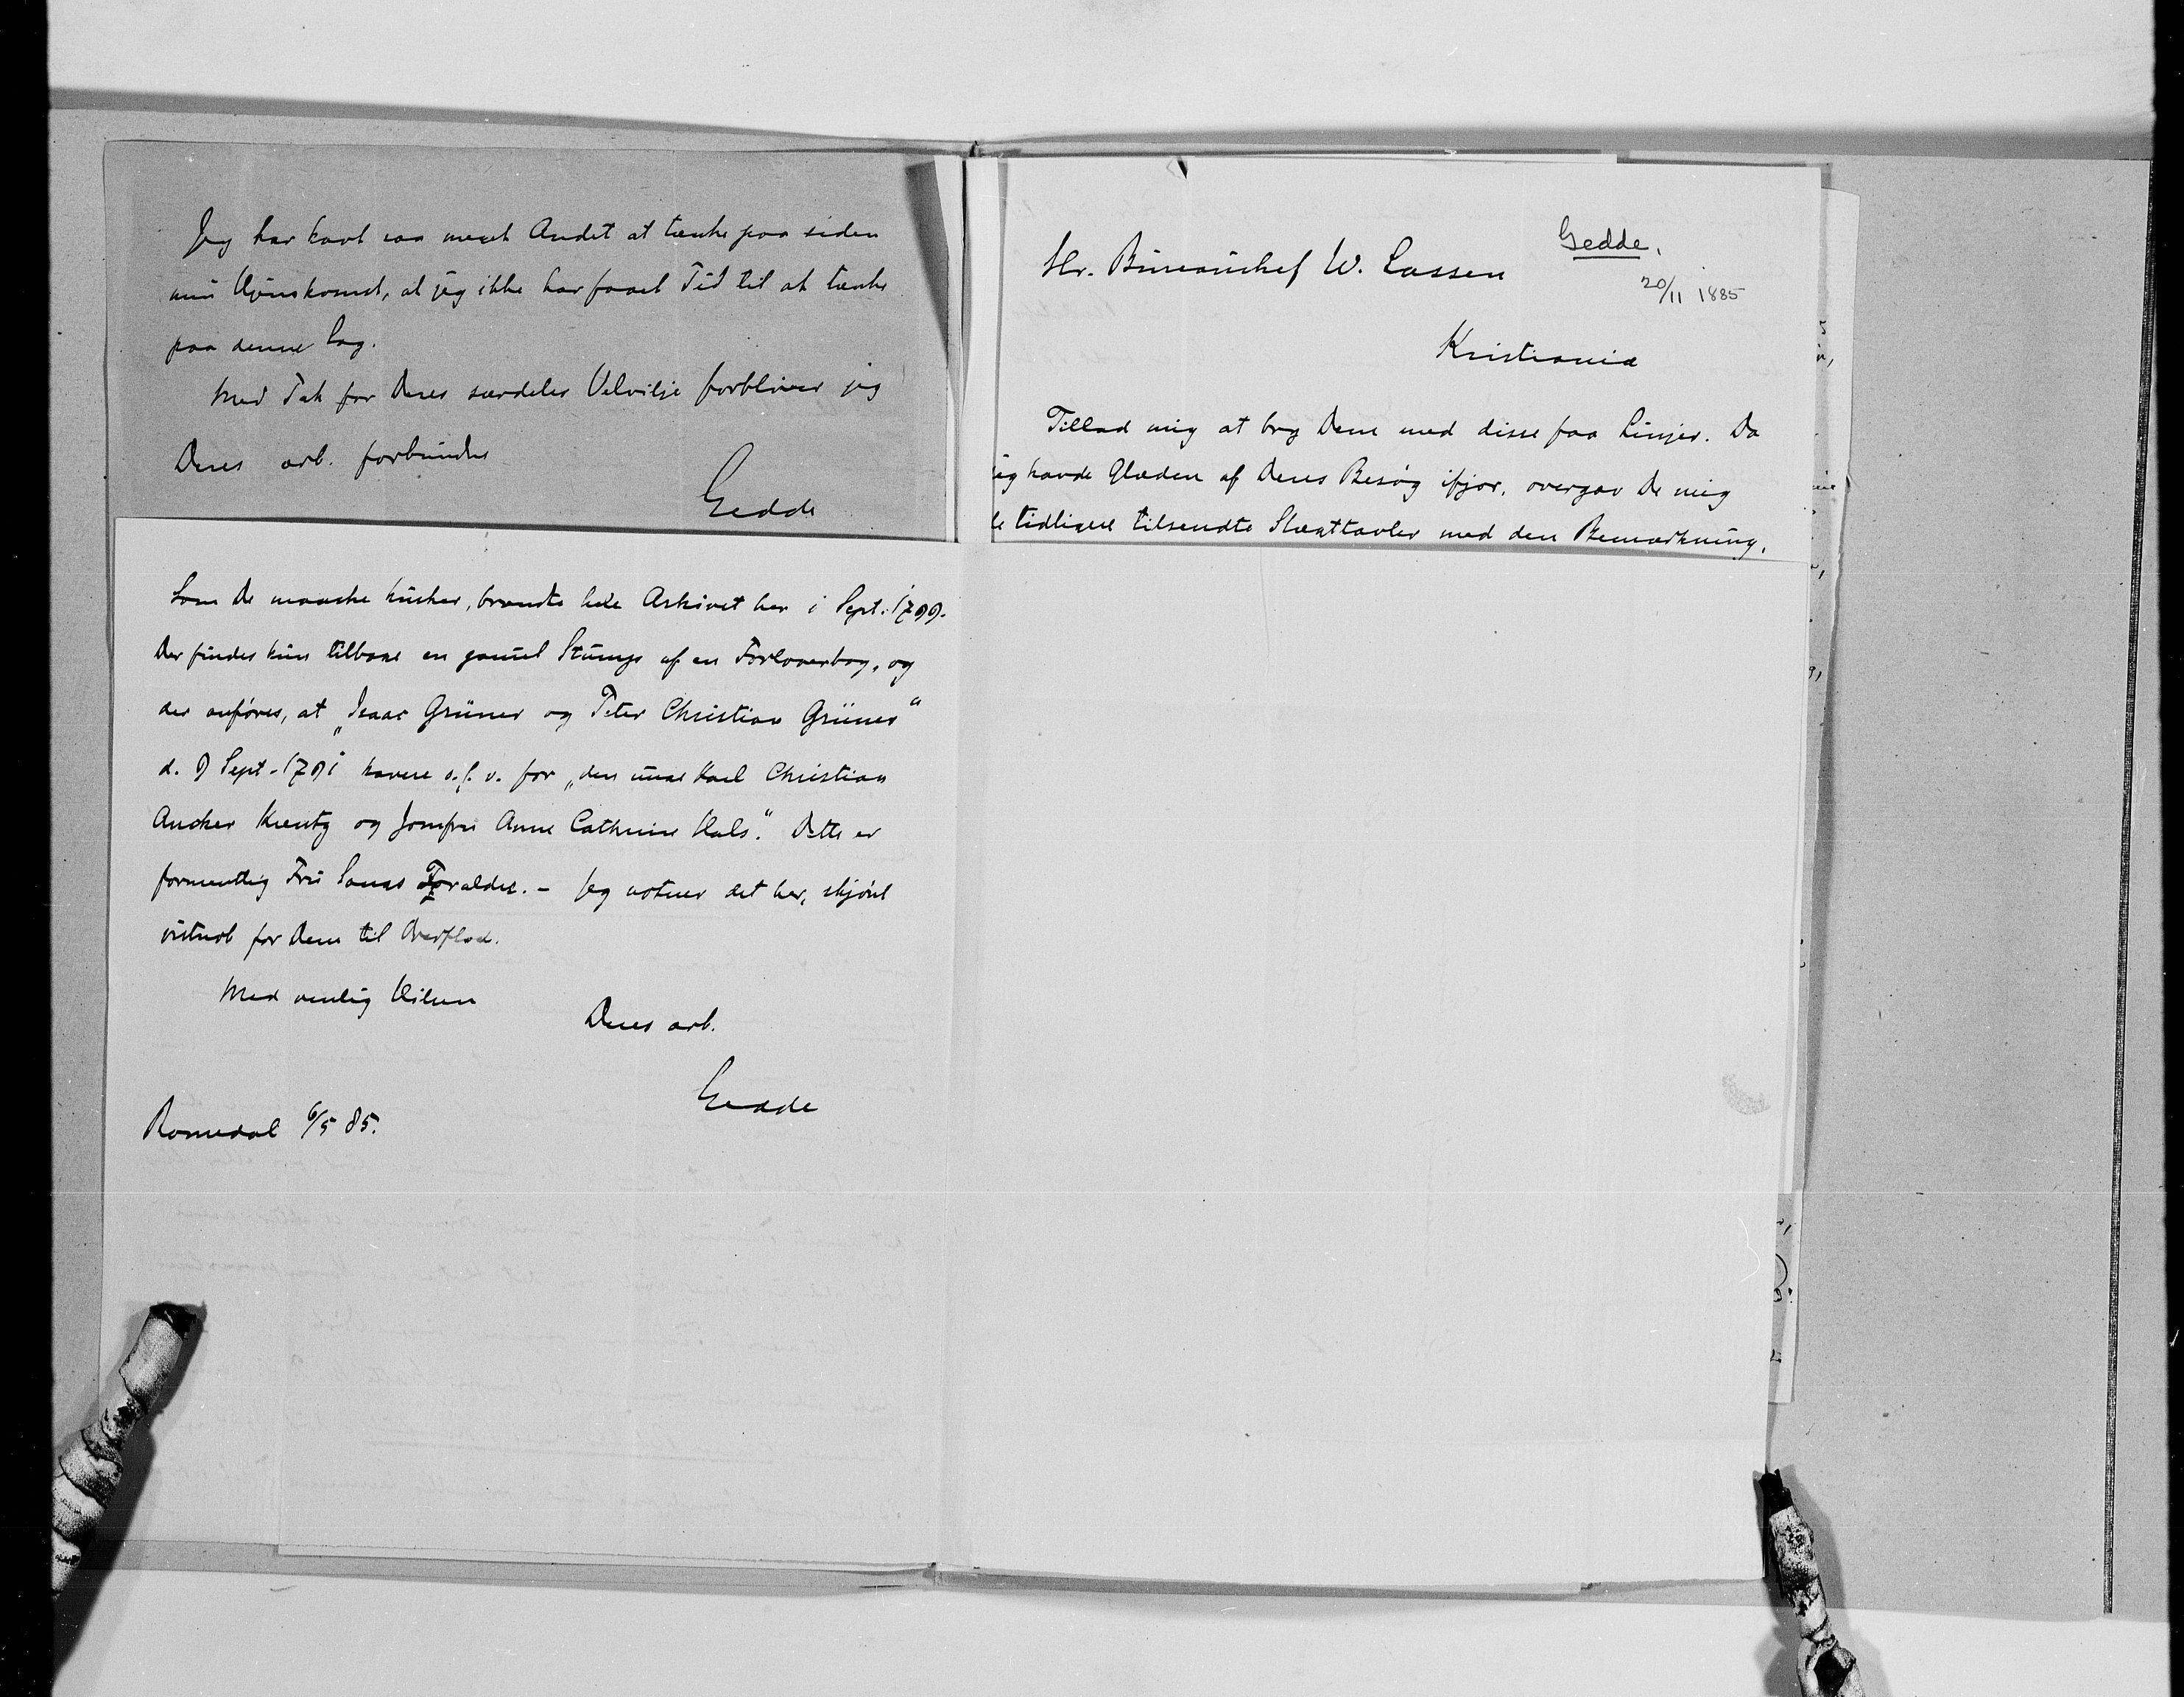 Jeg har havt saa meget Andet at tænke paa siden
min Hjemkomst, at jeg ikke har faaet Tid til at tænke
paa denne Sag.
Med Tak for Deres særdeles Velvilje forbliver jeg
Deres arb. forbundne
Gedde
Som De maaske husker, brændte hele Arkivet her i Sept. 1799.
Der findes kun tilbage en gammel Stump af en Forloverbog, og
der anføres, at „Isaac Grüner og Peter Christian Grüner“
d. 9 Sept. 1791 havere c. f. v. for „den unge Karl Christian
Ancher Kreutz og Jomfru Anne Cathrine Hals“. Dette er
formentlig Fru Forældre. – Jeg noterer det her, skjønt
vistnok for Dem til Overflod.
Med venlig Hilsen
Deres arb.
Gedde
Romedal 6/5 85.
Gedde.
Hr. Bureauchef W. Lassen
20/11 1885
Kristiania
Tillad mig at bry Dem med disse faa Linjer. Da
jeg havde Glæden af Deres Besøg ifjor, overgav De mig
de tidligere tilsendte Slægttavler med den Bemærkning,